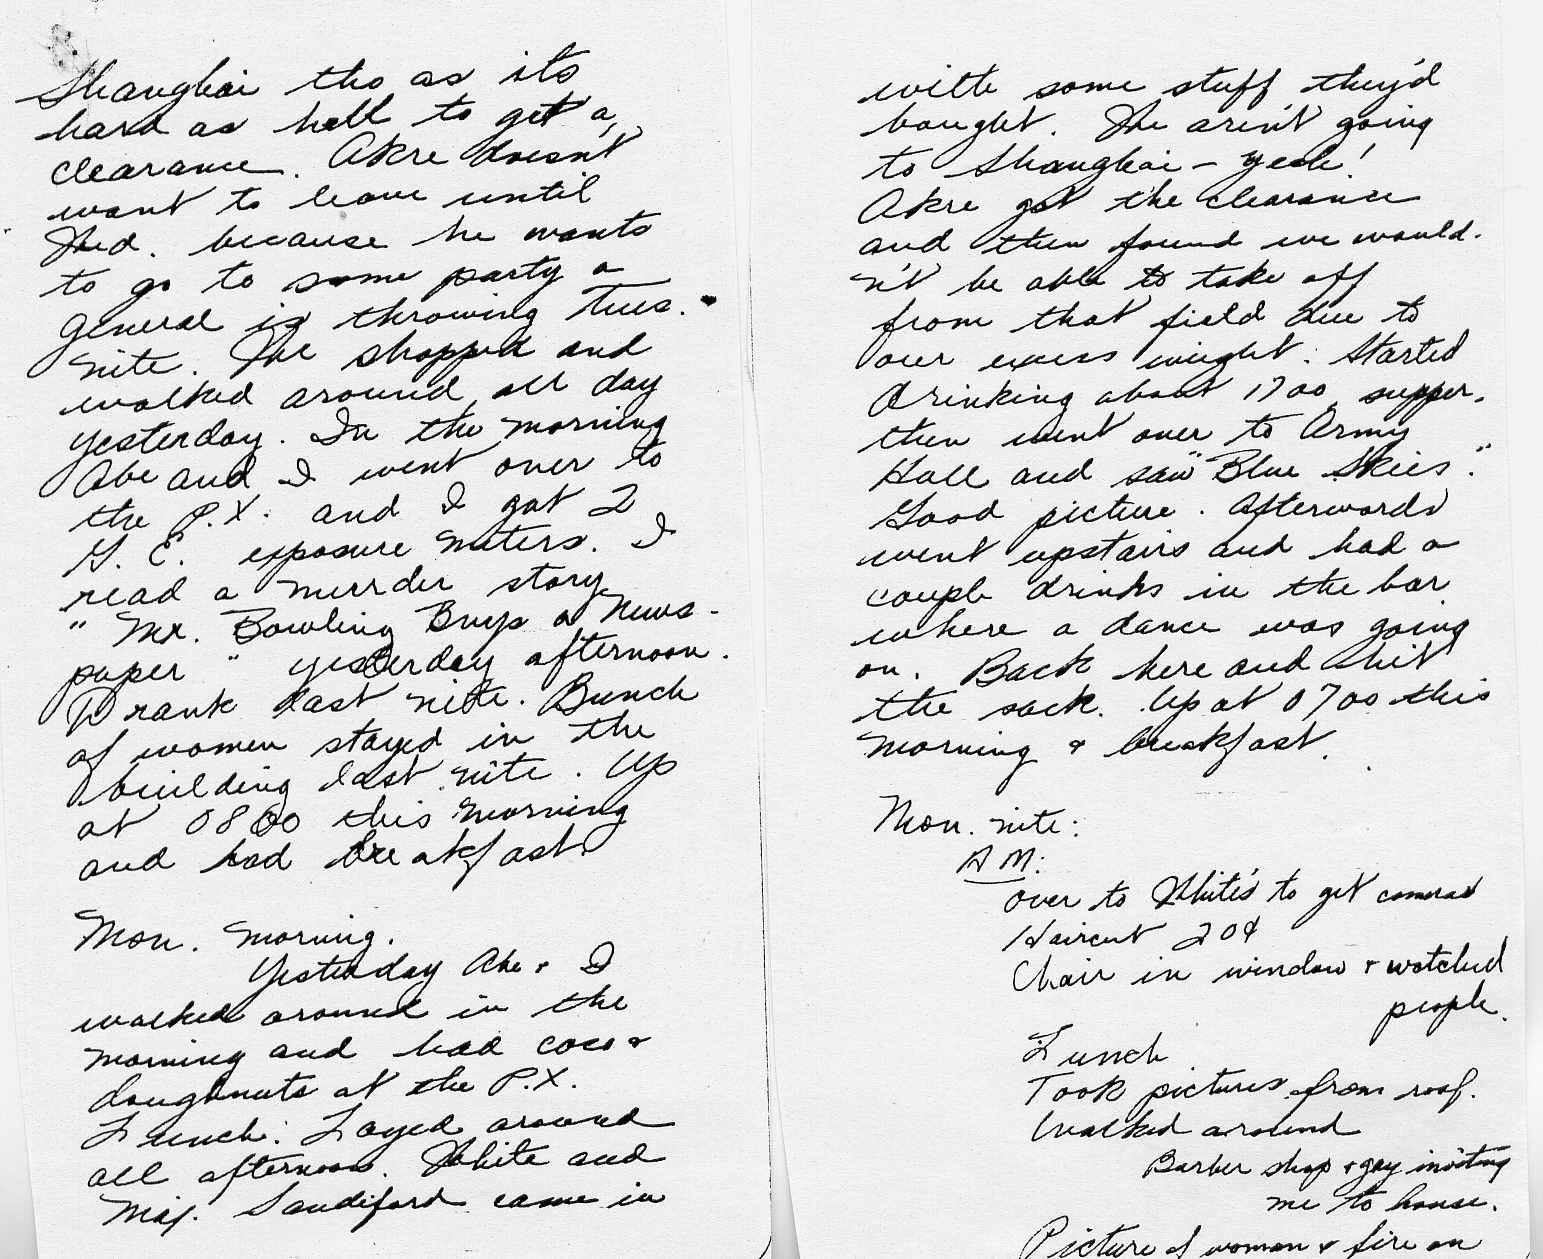 Shanghai tho as its
hard as hell to get a
clearance. Akre doesn't
want to leave until
Wed. because he wants
to go to some party a
general is throwing Tues.
nite. We shopped and
walked around all day
yesterday. In the morning
Abe and I went over to
the P.X. and I got 2
G.E. exposure meters. I
read a murder story
"Mr. Bowling Buys a News-
paper" yesterday afternoon.
Drank last nite. Bunch
of women stayed in the
building last nite. Up
at 0800 this morning
and had breakfast.
Mon. morning.
Yesterday Abe & I
walked around in the
morning and had coco &
doughnuts at the P.X.
Lunch. Layed around
all afternoon. White and
Maj. Sandiford came in
with some stuff they'd
bought. We aren't going
to Shanghai - yeah!
Akre got the clearance
and then found we would.
n't be able to take off
from that field due to
our excess weight. Started
drinking about 1700, supper,
then went over to Army
Hall and saw "Blue Skies".
Good picture. Afterwards
went upstairs and had a
couple drinks in the bar
where a dance was going
on. Back here and hit
the sack. Up at 0700 this
morning & breakfast.
Mon. nite:
AM:
Over to White's to get cameras
Haircut 20¢
Chair in window & watched
people.
Lunch
Took pictures from roof.
Walked around
Barber shop & guy inviting
me to house.
Picture of woman & fire on